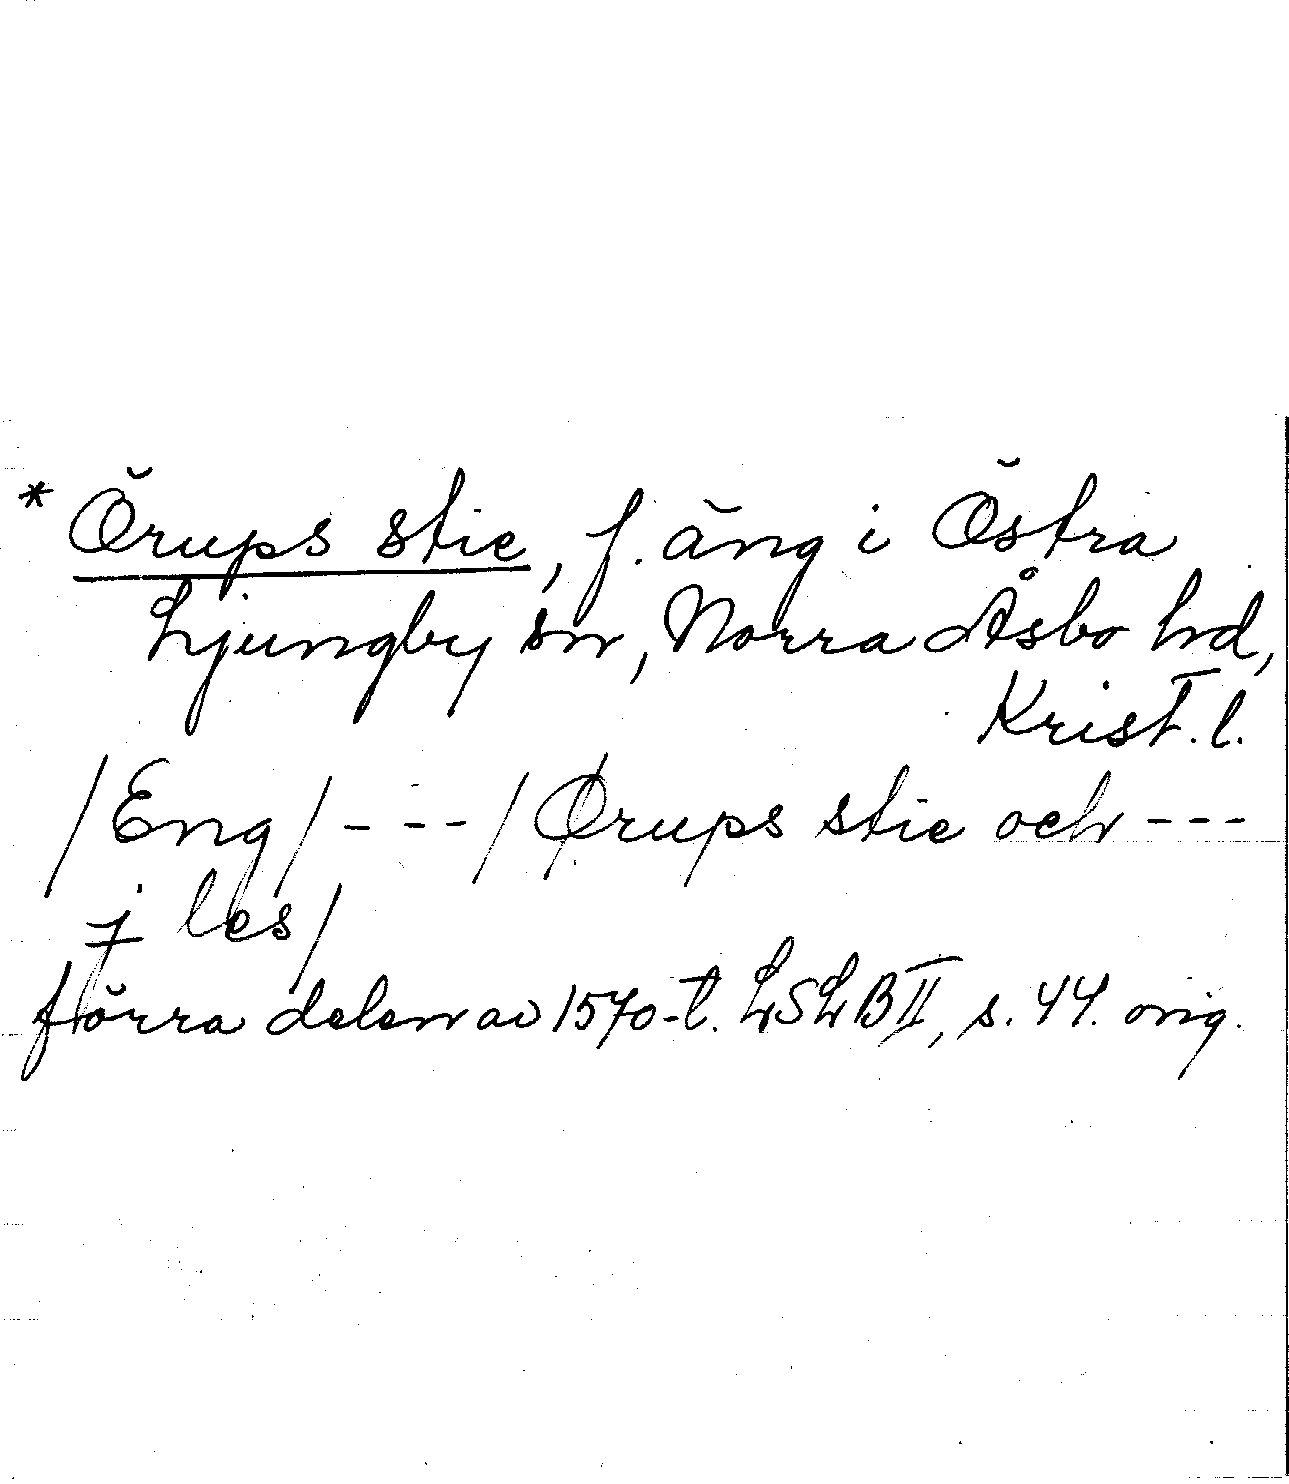 * Örups stie, f. äng i Östra
Ljungby sn, Norra Åsbo hd,
Krist. l.
/Eng/ - - - / Ørups stie och - - -
j les/
förra delen av 1570-t. LSLB II, s. 44. orig.